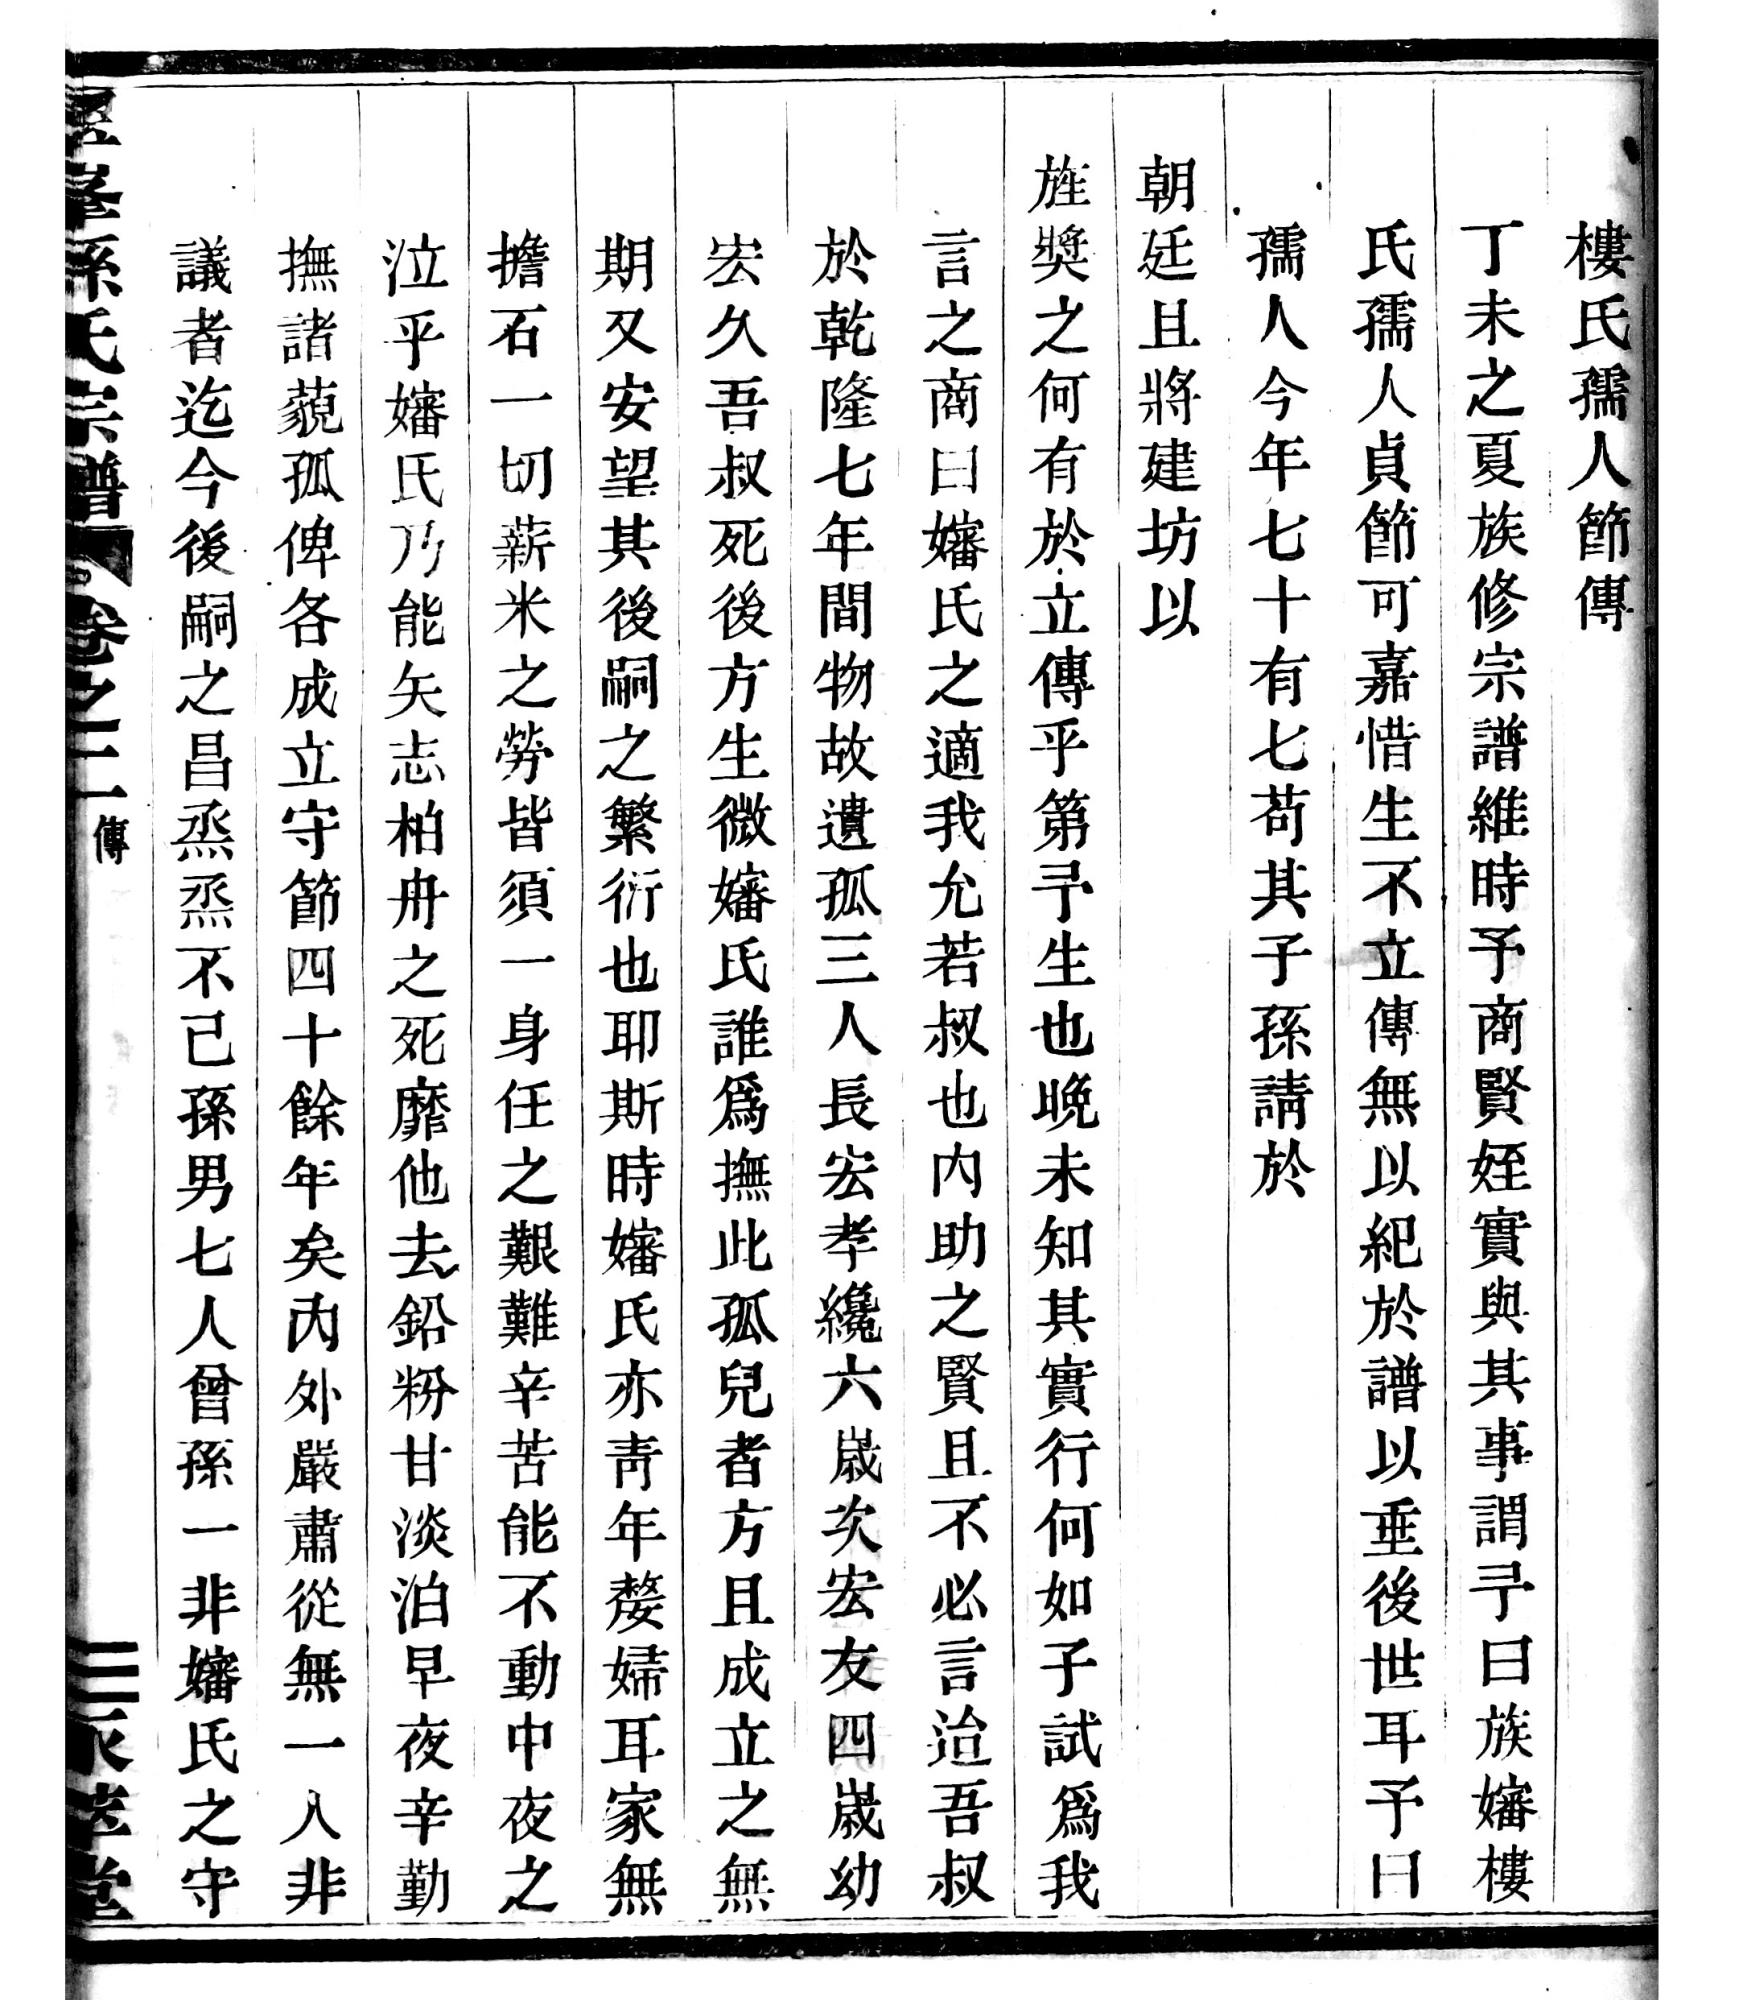 樓氏孺人節傳
丁未之夏族修宗譜維時予商賢姪實與其事謂予曰族嬸樓
氏孺人貞節可嘉惜生不立傳無以紀於譜以垂後世耳予曰
孺人今年七十有七苟其子孫請於
朝廷且將建坊以
旌獎之何有於立傳乎第予生也晚未知其實行何如子試爲我
言之商曰嬸氏之適我允若叔也內助之賢且不必言迨吾叔
於乾隆七年間物故遺孤三人長宏孝纔六歲次宏友四歲幼
宏久吾叔死後方生微嬸氏誰爲撫此孤兒者方且成立之無
期又安望其後嗣之繁衍也耶斯時嬸氏亦靑年嫠婦耳家無
擔石一切薪米之勞皆須一身任之艱難辛苦能不動中夜之
泣乎嬸氏乃能矢志柏舟之死靡他去鉛粉甘淡泊早夜辛勤
撫諸藐孤俾各成立守節四十餘年矣內外嚴肅從無一人非
議者迄今後嗣之昌烝烝不已孫男七人曾孫一非嬸氏之守
峯孫氏宗譜 卷之二 傳 三 永萃堂